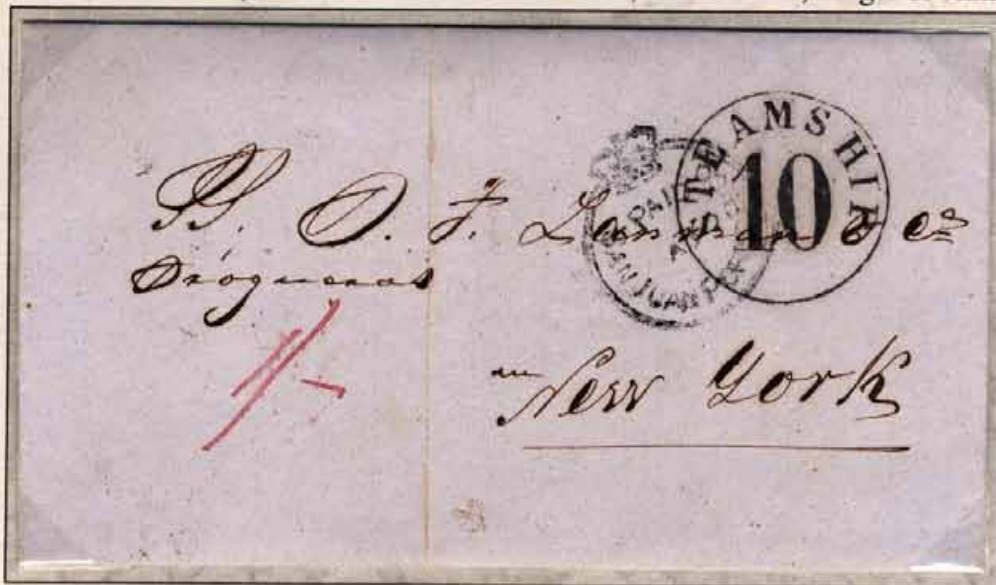 STEAMSHIP
10
PAID
SAN JUAN P.R.
D. F. Lanman & Co
Drogueros
1/-
New York